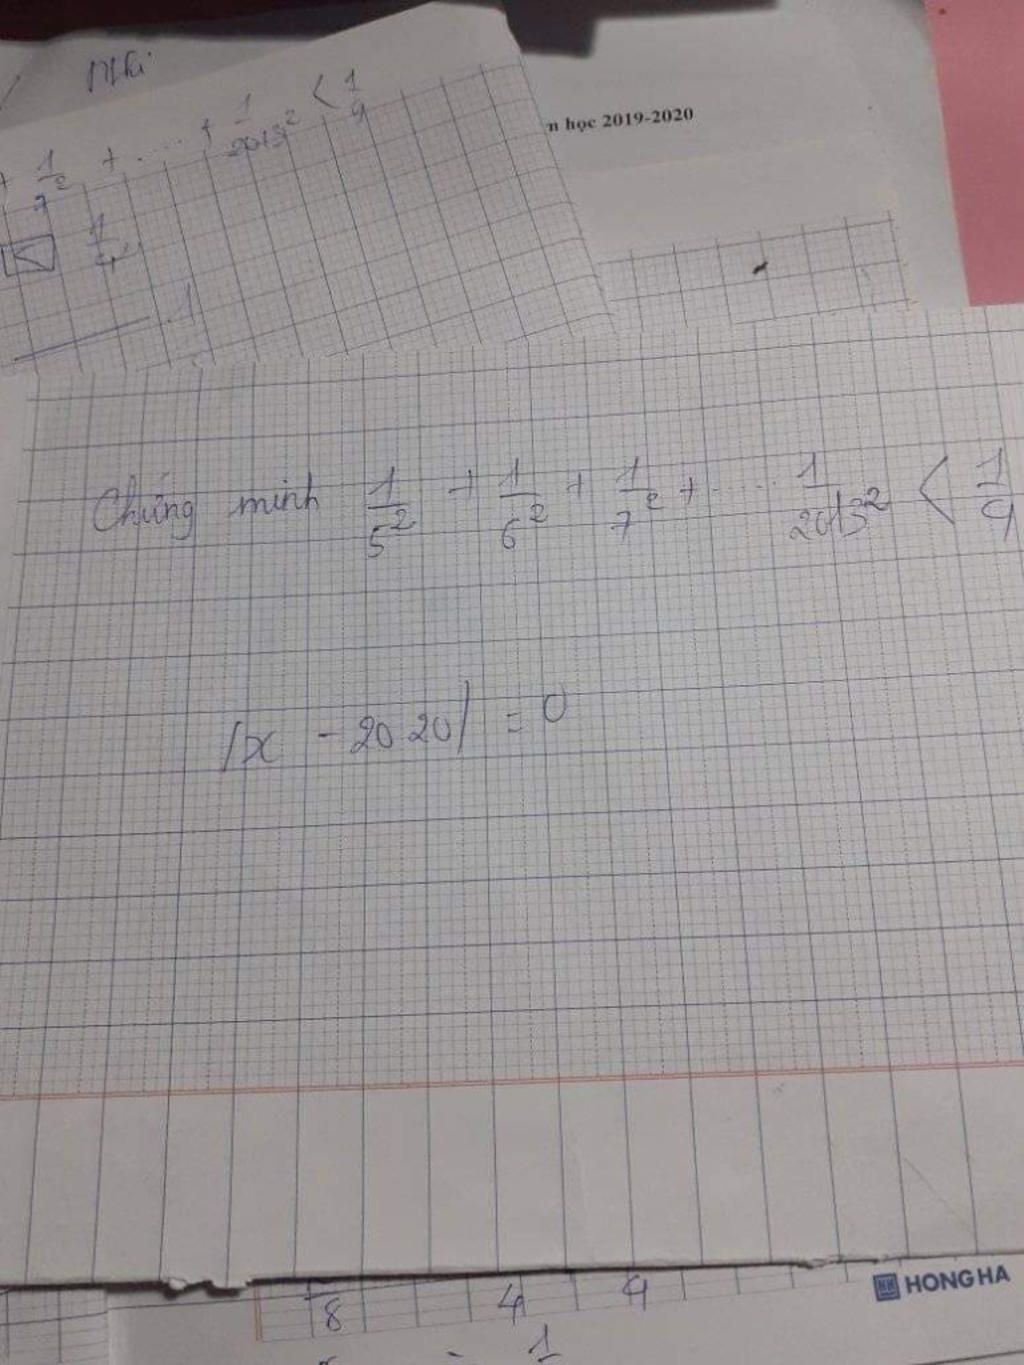 Nhi
+ 1/7² + .... + 1/2013² < 1/4
< 1/4
1
n học 2019-2020
Chứng minh 1/5² + 1/6² + 1/7² + ..... 1/2013² < 1/4
|x - 2020| = 0
8 4 4
1
HONG HA